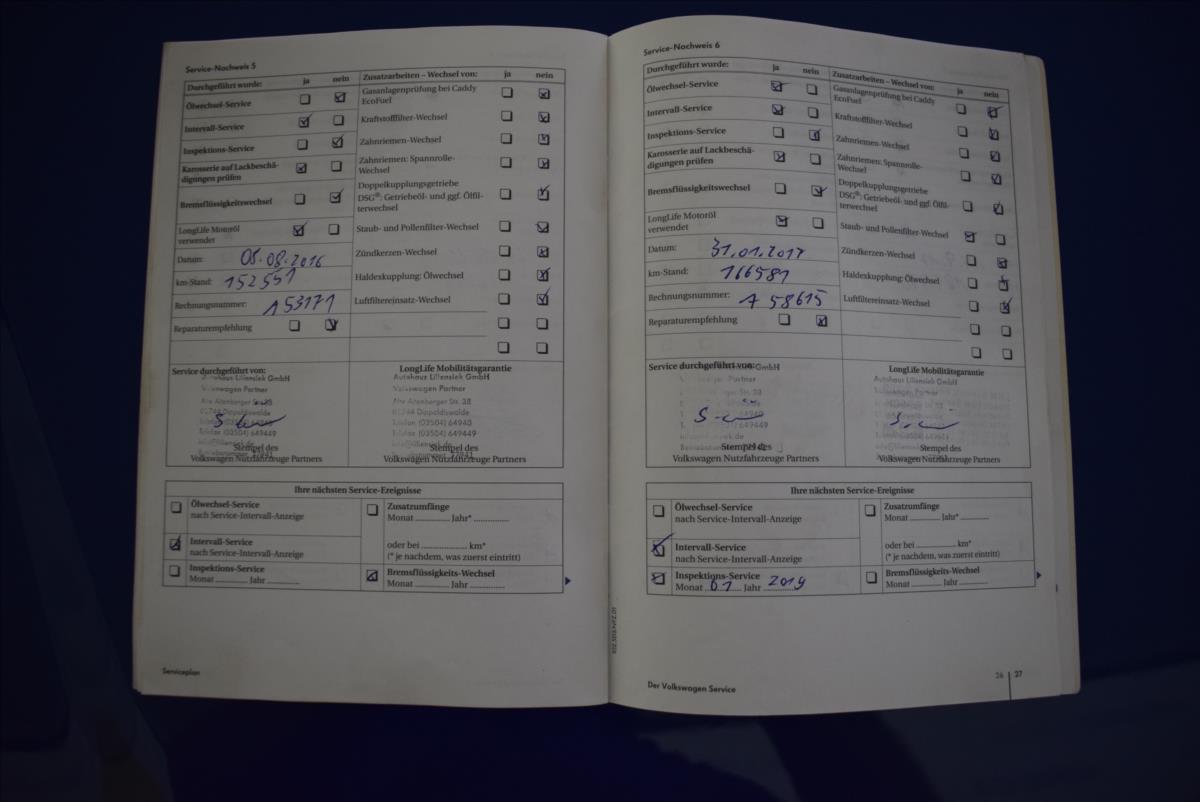 Service-Nachweis 5
Durchgeführt wurde: ja nein
Ölwechsel-Service
Intervall-Service
Inspektions-Service
Karosserie auf Lackbeschä-
digungen prüfen
Bremsflüssigkeitswechsel
LongLife Motoröl
verwendet
Datum: 08.08.2016
km-Stand: 152551
Rechnungsnummer: A53171
Reparaturempfehlung
Zusatzarbeiten – Wechsel von: ja nein
Gasanlagenprüfung bei Caddy
EcoFuel
Kraftstofffilter-Wechsel
Zahnriemen-Wechsel
Zahnriemen: Spannrolle-
Wechsel
Doppelkupplungsgetriebe
DSG®: Getriebeöl- und ggf. Ölfil-
terwechsel
Staub- und Pollenfilter-Wechsel
Zündkerzen-Wechsel
Haldexkupplung: Ölwechsel
Luftfiltereinsatz-Wechsel
Service durchgeführt von:
Autohaus Liliensiek GmbH
Volkswagen Partner
Alte Altenberger Str. 38
01744 Dippoldiswalde
Telefon (03504) 64940
Telefax (03504) 649449
Stempel des
Volkswagen Nutzfahrzeuge Partners
LongLife Mobilitätsgarantie
Autohaus Liliensiek GmbH
Volkswagen Partner
Alte Altenberger Str. 38
01744 Dippoldiswalde
Telefon (03504) 64940
Telefax (03504) 649449
Stempel des
Volkswagen Nutzfahrzeuge Partners
Ihre nächsten Service-Ereignisse
Ölwechsel-Service
nach Service-Intervall-Anzeige
Intervall-Service
nach Service-Intervall-Anzeige
Inspektions-Service
Monat ............ Jahr ............
Zusatzumfänge
Monat ............ Jahr* ............
oder bei ............ km*
(* je nachdem, was zuerst eintritt)
Bremsflüssigkeits-Wechsel
Monat ............ Jahr ............
Serviceplan
Service-Nachweis 6
Durchgeführt wurde: ja nein
Ölwechsel-Service
Intervall-Service
Inspektions-Service
Karosserie auf Lackbeschä-
digungen prüfen
Bremsflüssigkeitswechsel
LongLife Motoröl
verwendet
Datum: 31.01.2017
km-Stand: 166581
Rechnungsnummer: A 58615
Reparaturempfehlung
Zusatzarbeiten – Wechsel von: ja nein
Gasanlagenprüfung bei Caddy
EcoFuel
Kraftstofffilter-Wechsel
Zahnriemen-Wechsel
Zahnriemen: Spannrolle-
Wechsel
Doppelkupplungsgetriebe
DSG®: Getriebeöl- und ggf. Ölfil-
terwechsel
Staub- und Pollenfilter-Wechsel
Zündkerzen-Wechsel
Haldexkupplung: Ölwechsel
Luftfiltereinsatz-Wechsel
Service durchgeführt von:
Stempel des
Volkswagen Nutzfahrzeuge Partners
LongLife Mobilitätsgarantie
Autohaus Liliensiek GmbH
Stempel des
Volkswagen Nutzfahrzeuge Partners
Ihre nächsten Service-Ereignisse
Ölwechsel-Service
nach Service-Intervall-Anzeige
Intervall-Service
nach Service-Intervall-Anzeige
Inspektions-Service
Monat 01 Jahr 2019
Zusatzumfänge
Monat ............ Jahr* ............
oder bei ............ km*
(* je nachdem, was zuerst eintritt)
Bremsflüssigkeits-Wechsel
Monat ............ Jahr ............
Der Volkswagen Service
26 27